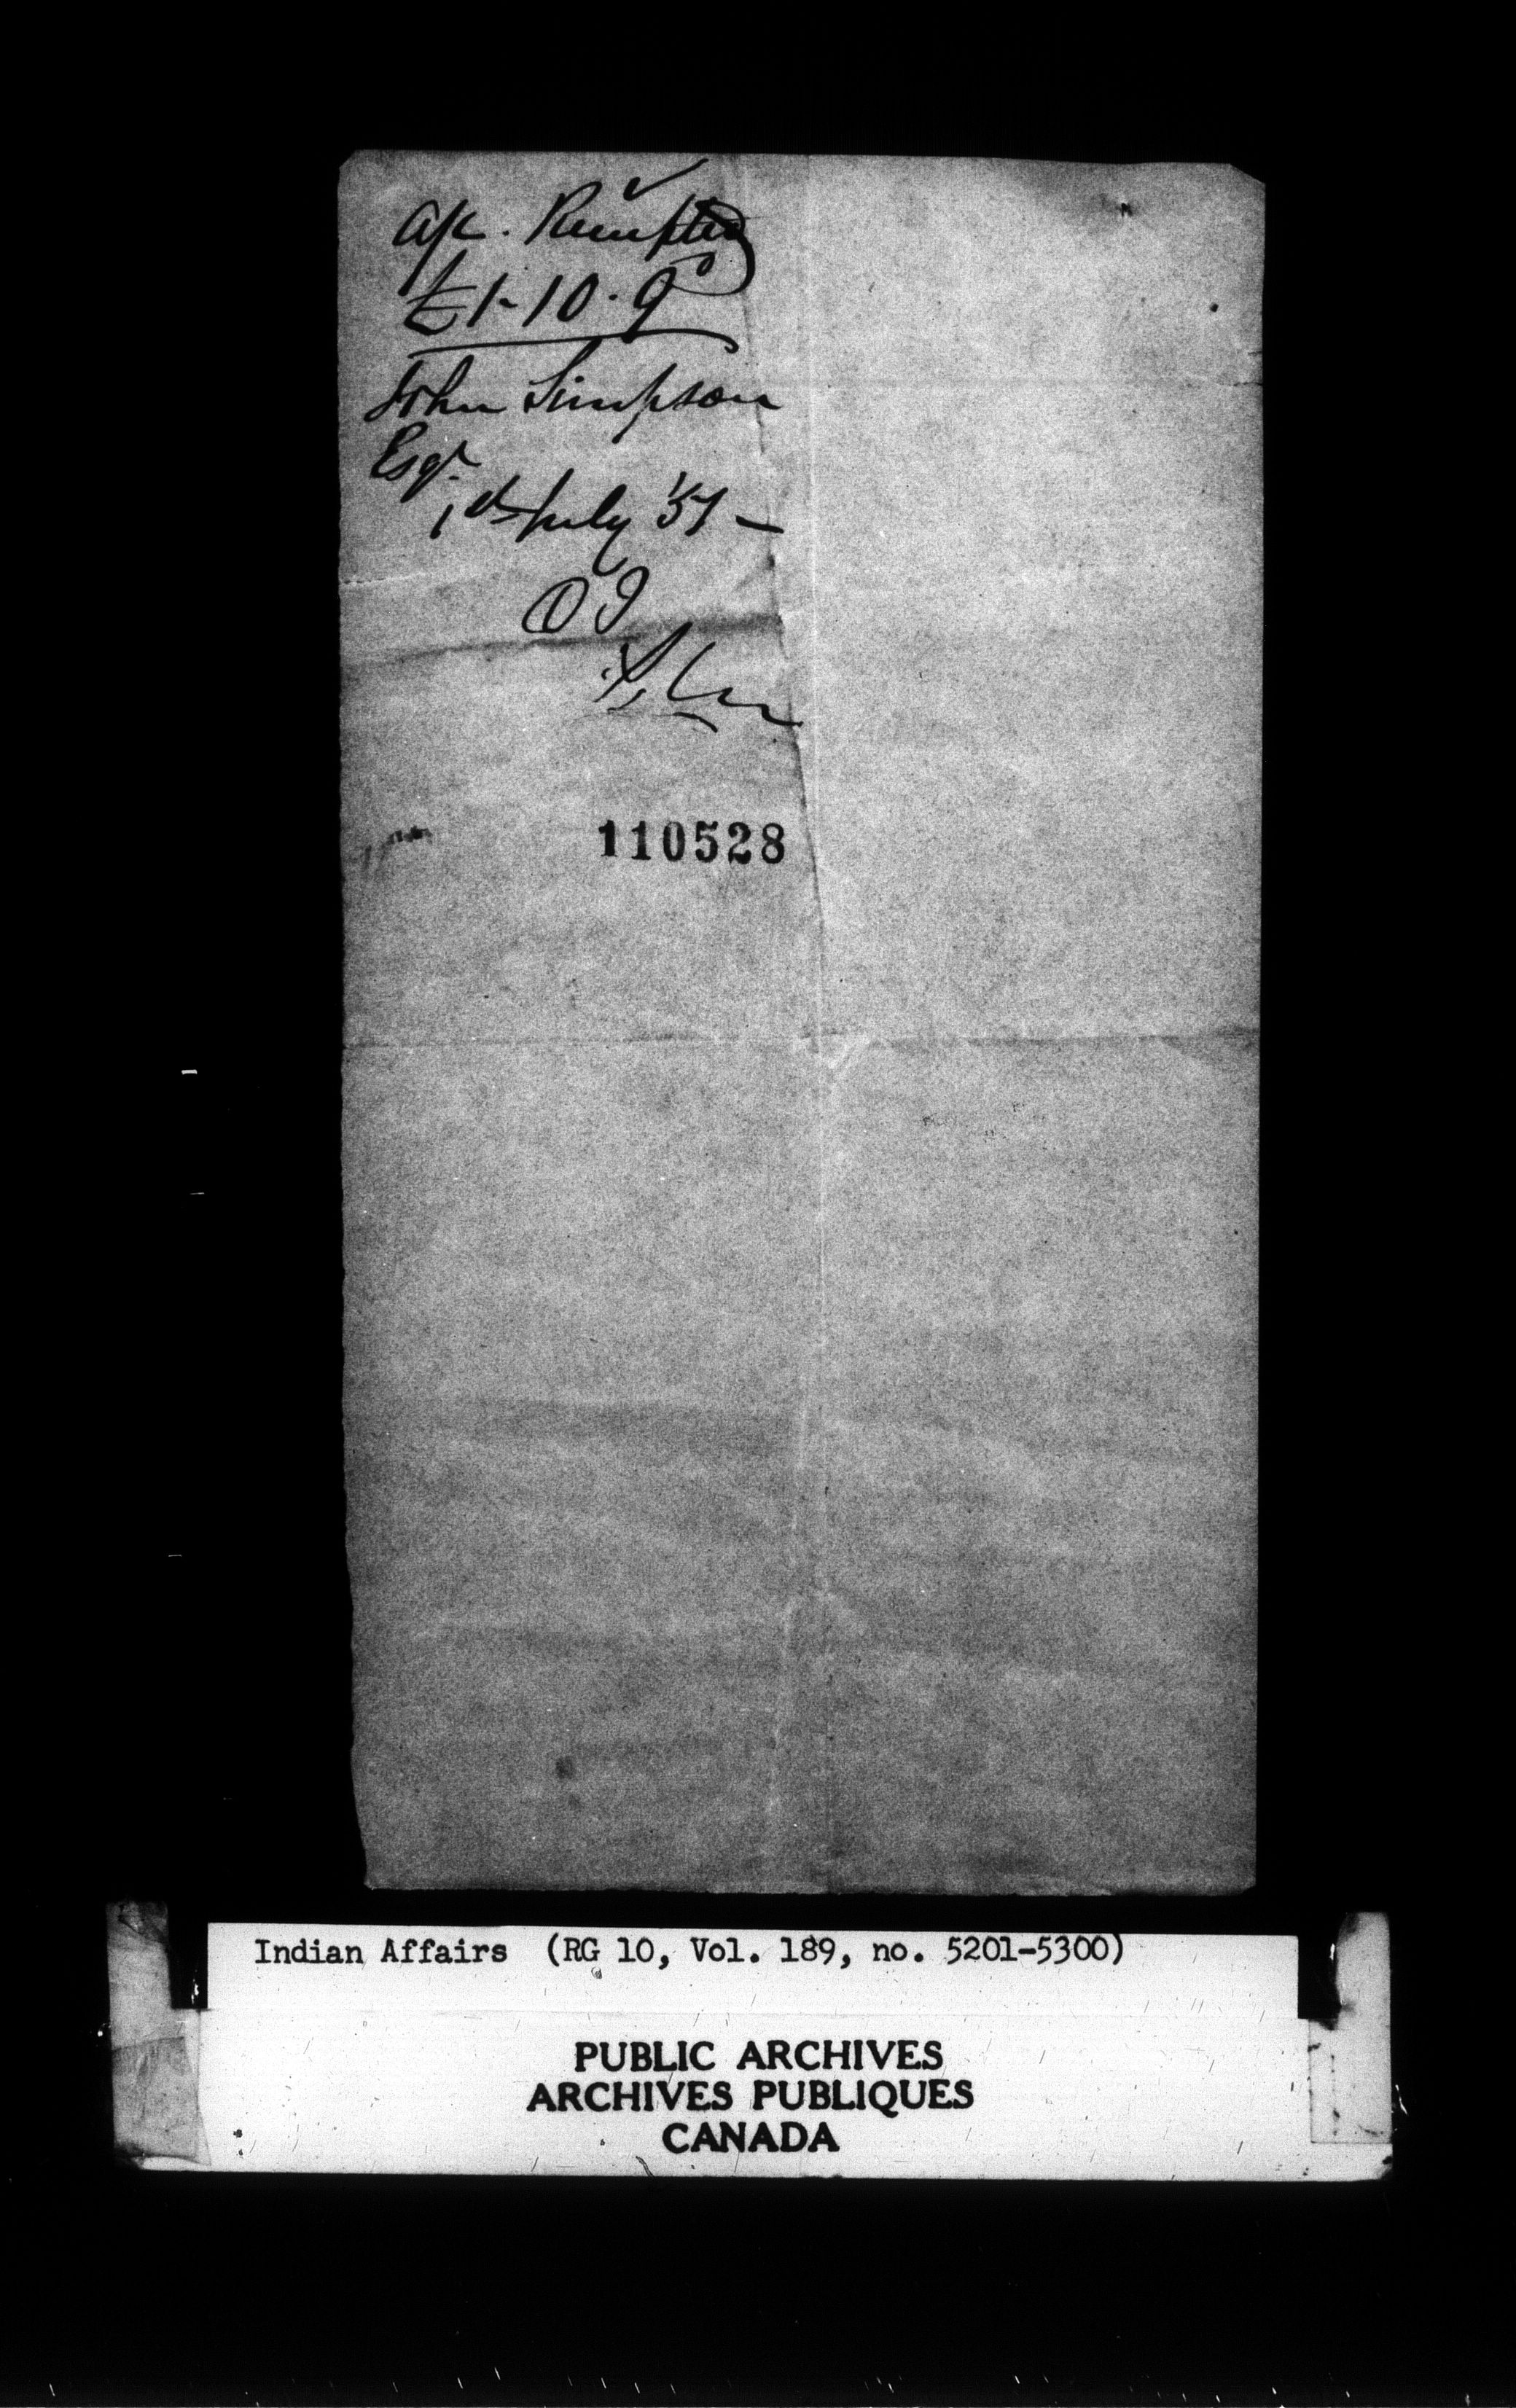 a/c. Receipted
£1-10.9
John Simpson
Esqr.
1st July '51 -
110528
Indian Affairs (RG 10, Vol. 189, no. 5201-5300)
PUBLIC ARCHIVES
ARCHIVES PUBLIQUES
CANADA